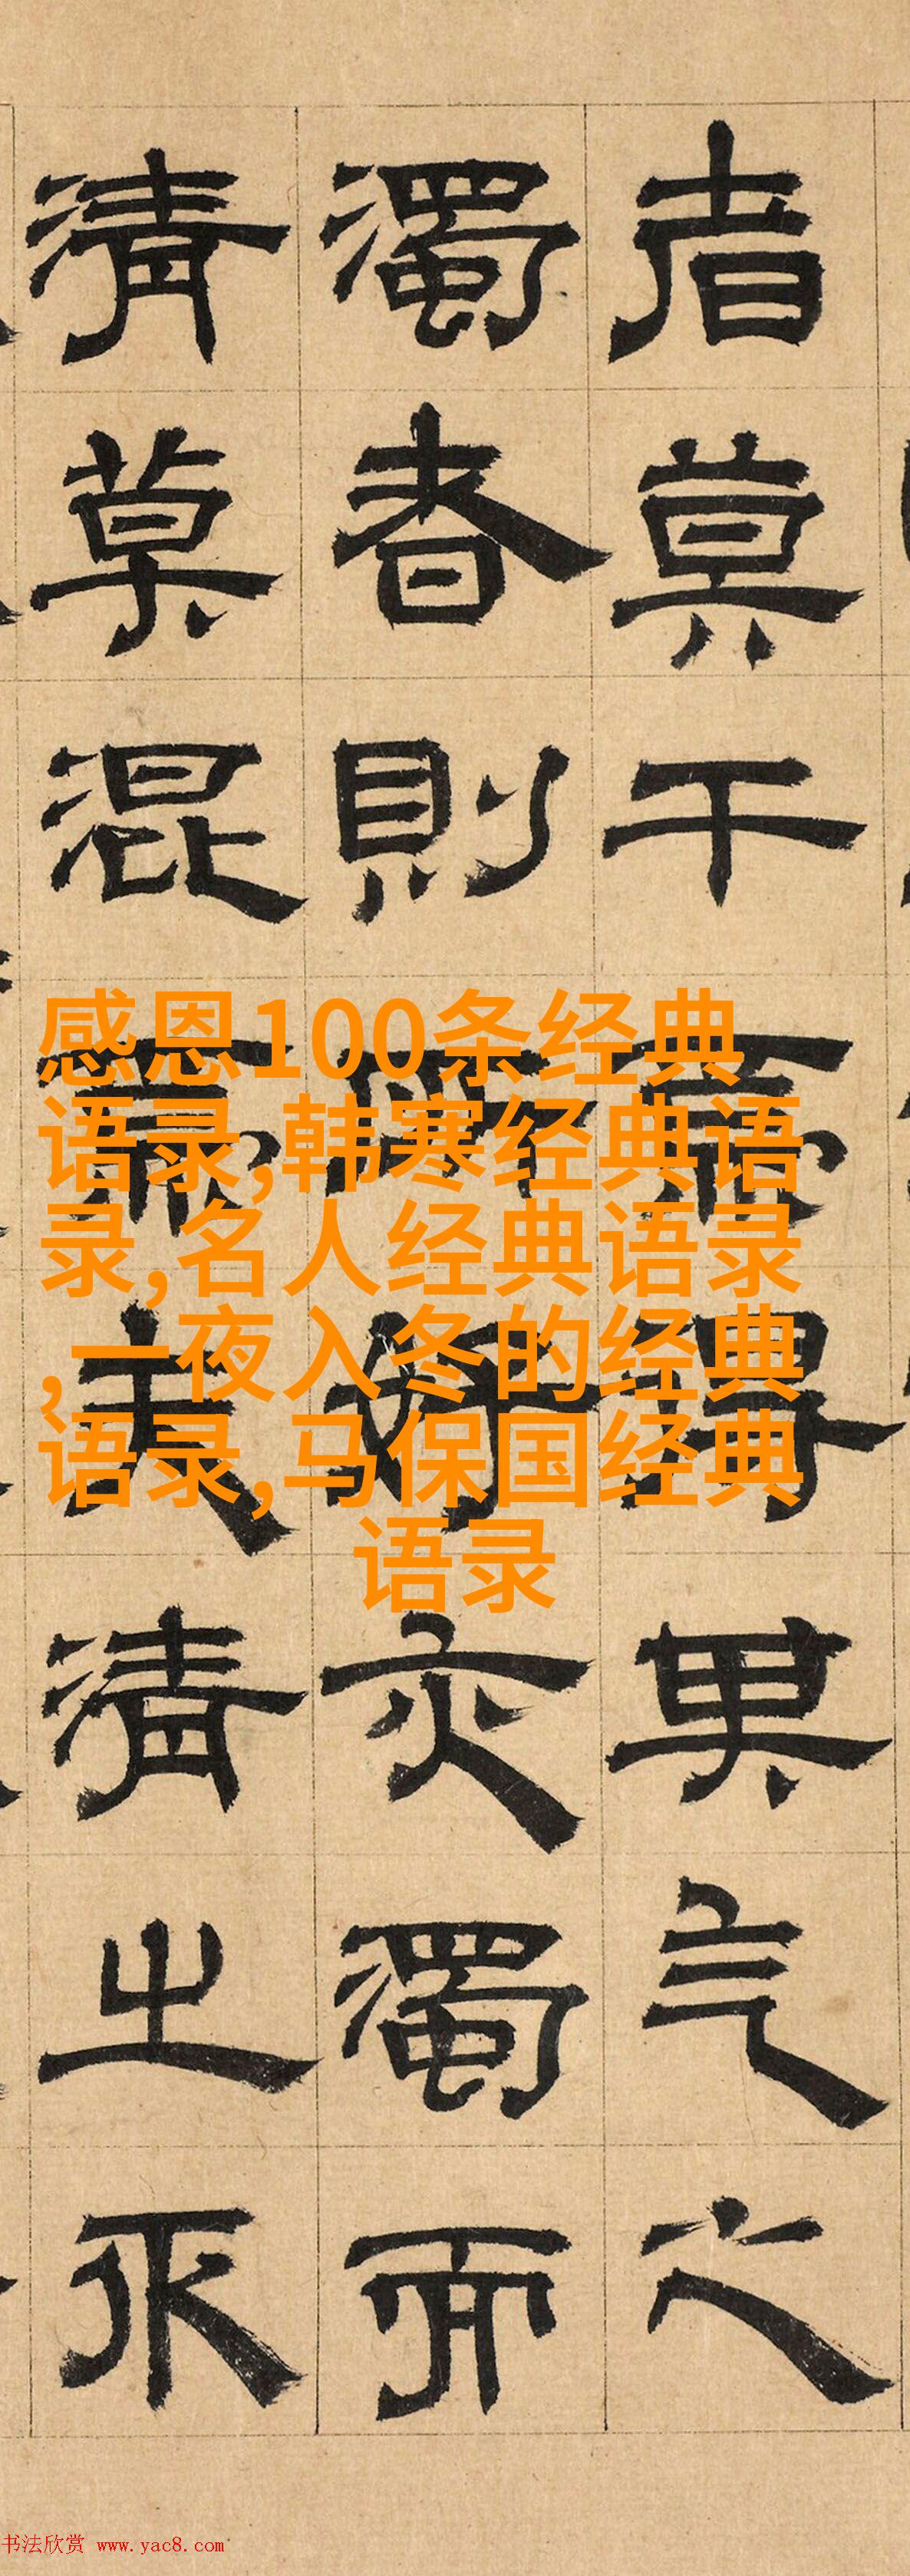 者莫干得其气之
濁者則亦濁而
清莫混美清之
感恩100条经典
语录,韩寒经典语
录,名人经典语录
,一夜入冬的经典
语录,马保国经典
语录
书法欣赏 www.yac8.com